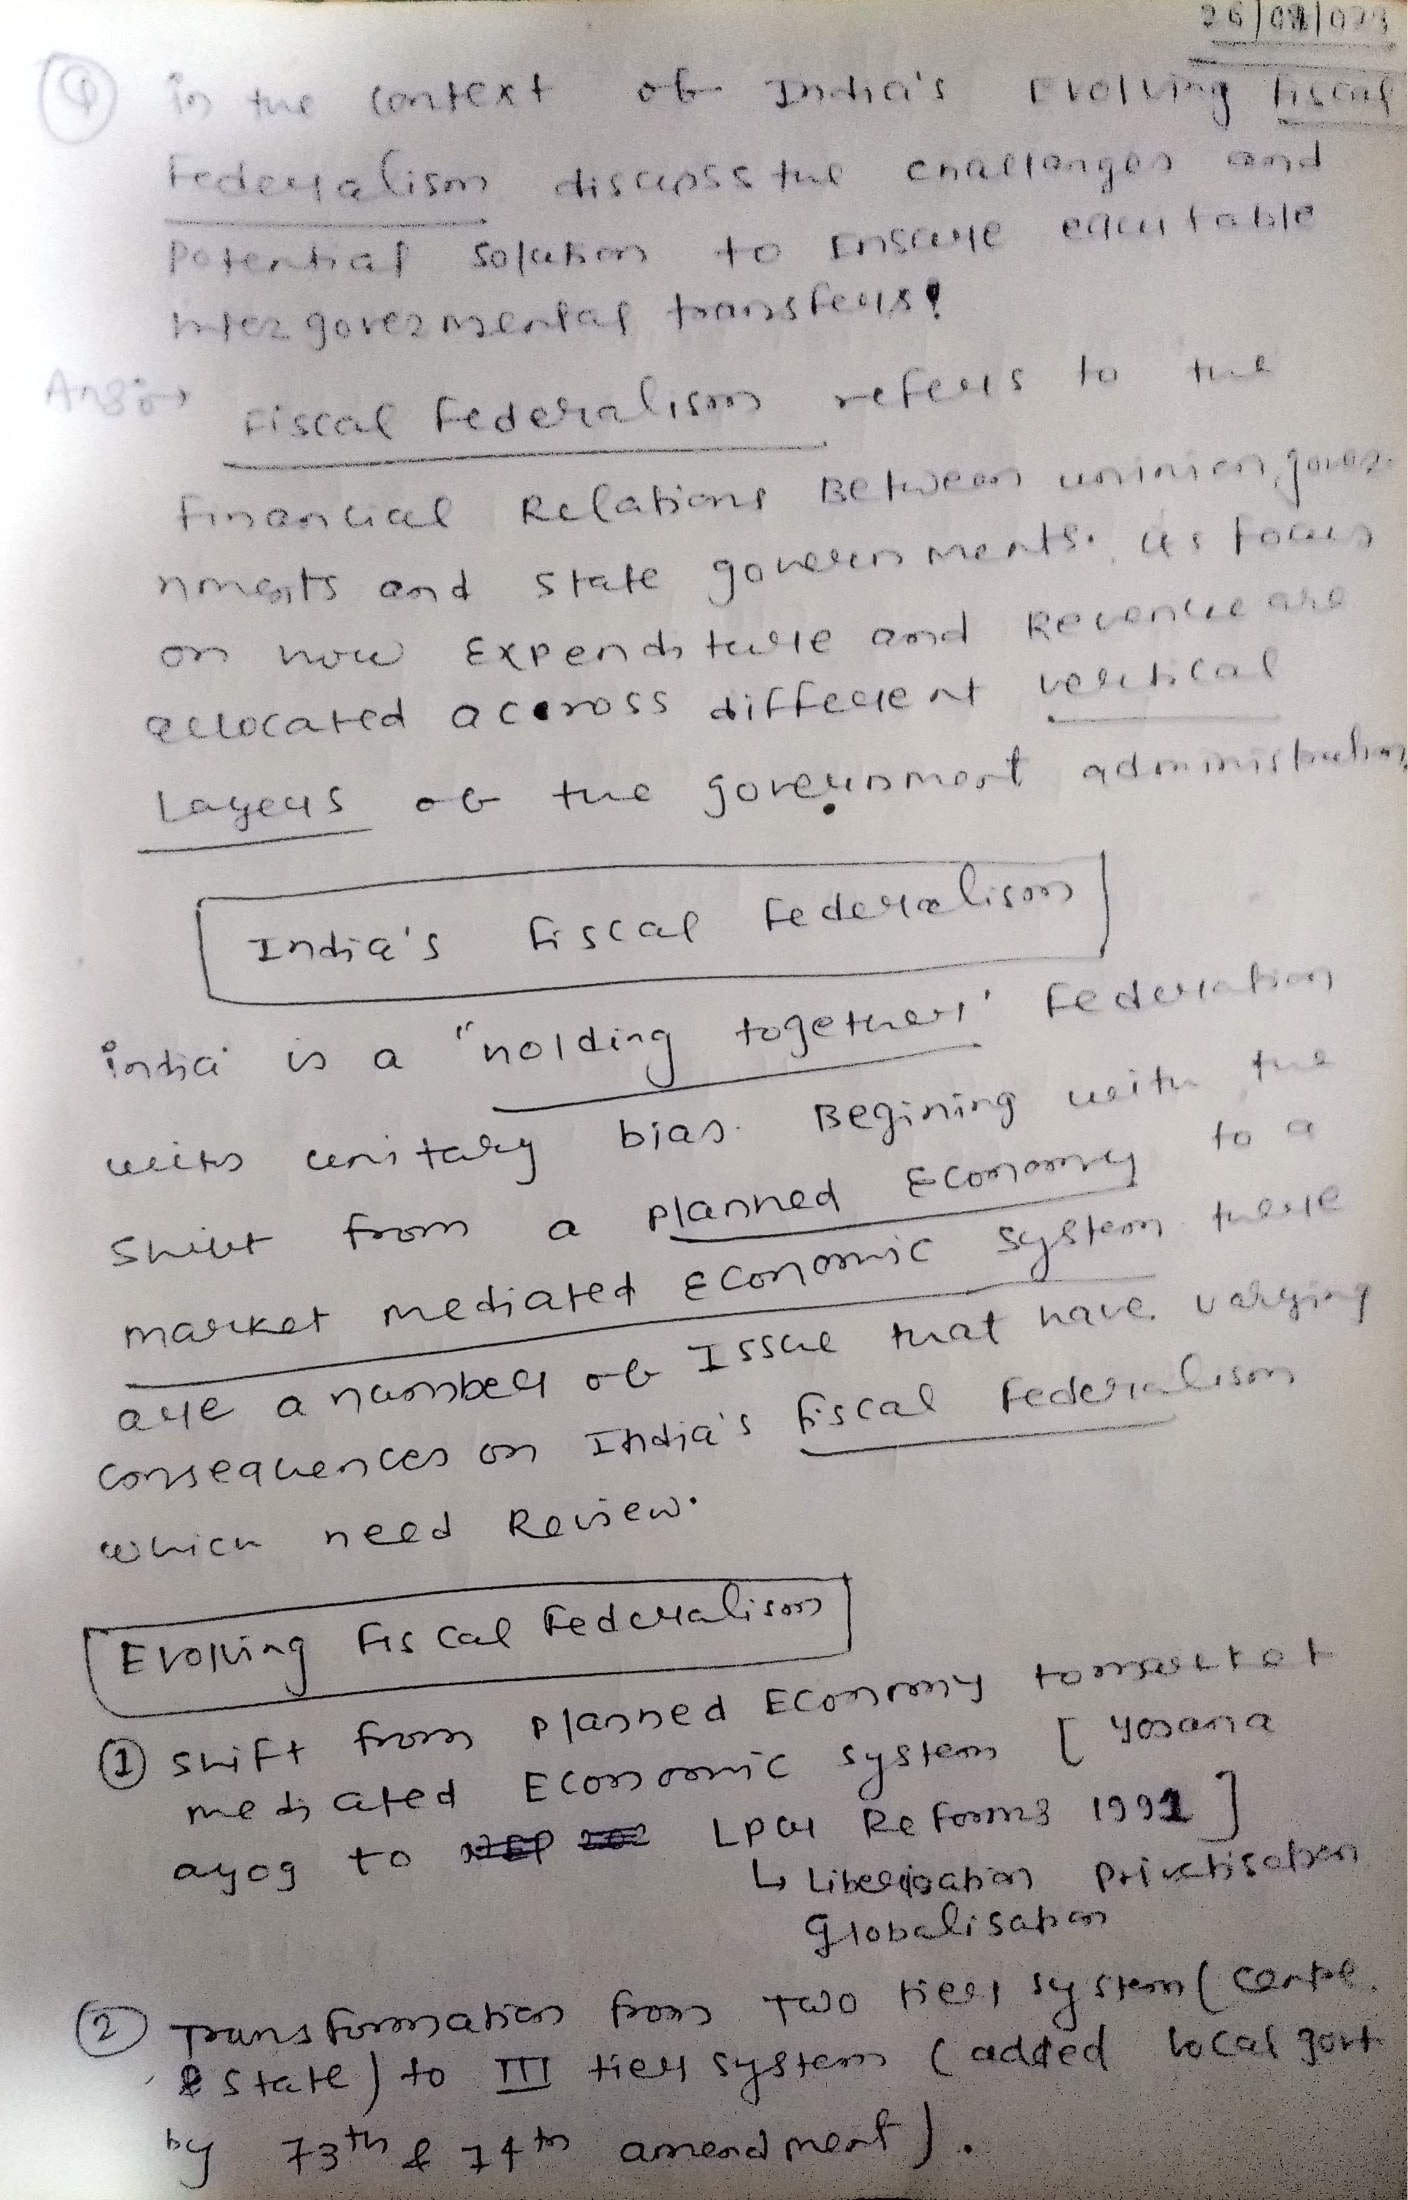 26/08/023
Q in the context of India's Evolving fiscal
Federalism discuss the challanges and
Potential Solution to Ensure equitable
inter govermental transfers?
Ans:→ Fiscal Federalism refers to the
Financial Relations Between uninion gover-
nments and state governments. its focus
on how Expenditure and Revenue are
allocated accross different vertical
Layers of the government administration
India's fiscal Federalism
india is a "holding together' Federation
with unitary bias. Begining with the
Shift from a planned Economy to a
market mediated Economic system there
are a number of Issue that have varying
consequences on India's fiscal federalism
which need Review.
Evolving Fiscal Federalism
① shift from planned Economy to market
mediated Economic system [ Yojana
ayog to LPG Reforms 1991 ]
↳ Privatisation
Globalisation
② Transformation from Two tier system (centre
& State) to III tier system (added local govt
by 73th & 74th amendment).